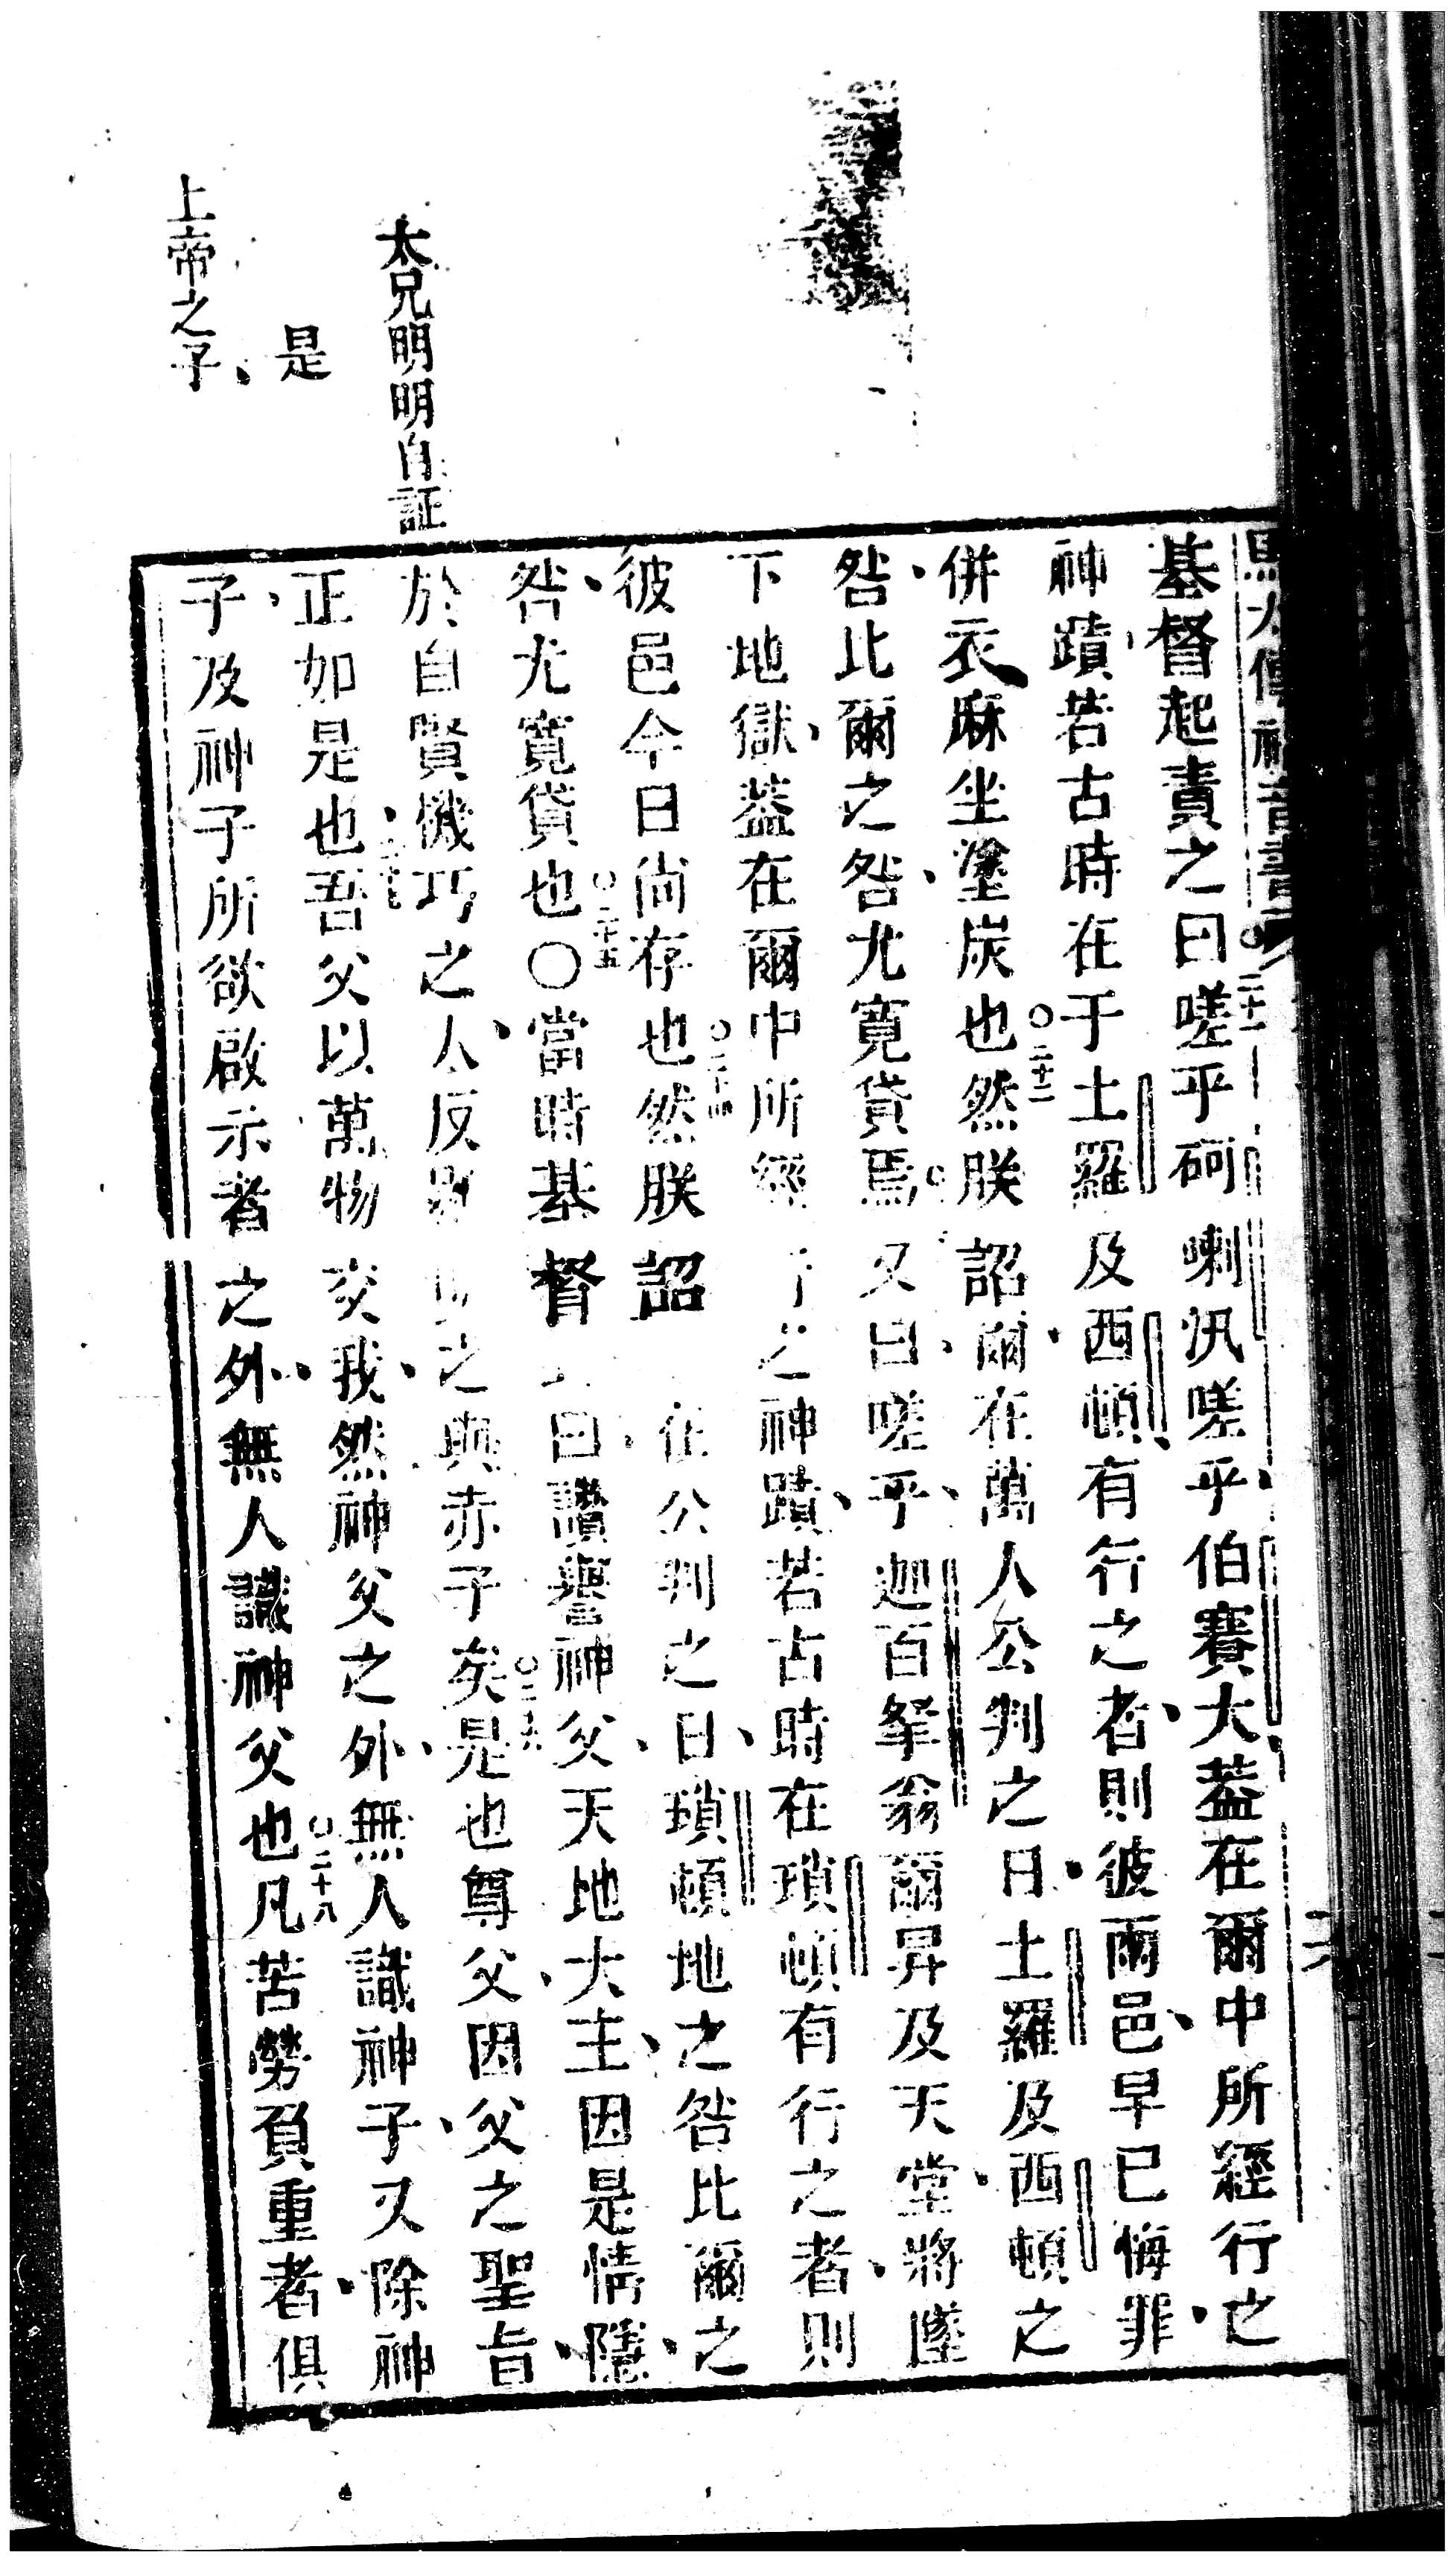 馬太傳福音書
基督起責之曰嗟乎砢喇汛嗟乎伯賽大葢在爾中所經行之
二十一
神蹟若古時在于土羅及西頓有行之者則彼兩邑早已悔罪
併衣麻坐塗炭也然朕詔爾在萬人公判之日土羅及西頓之
二十二
咎比爾之咎尤寬貸焉又曰嗟乎迦百拏翁爾昇及天堂將墜
下地獄葢在爾中所經之神蹟若古時在瑣頓有行之者則
彼邑今日尚存也然朕詔在公判之日瑣頓地之咎比爾之
二十四
咎尤寬貸也○當時基督曰讚譽神父天地大主因是情隱
二十五
於自賢機巧之人反之與赤子矣是也尊父因父之聖旨
二十六
正如是也吾父以萬物交我然神父之外無人識神子又除神
子及神子所欲啟示者之外無人識神父也凡苦勞負重者俱
二十八
太兄明明自証
是
上帝之子